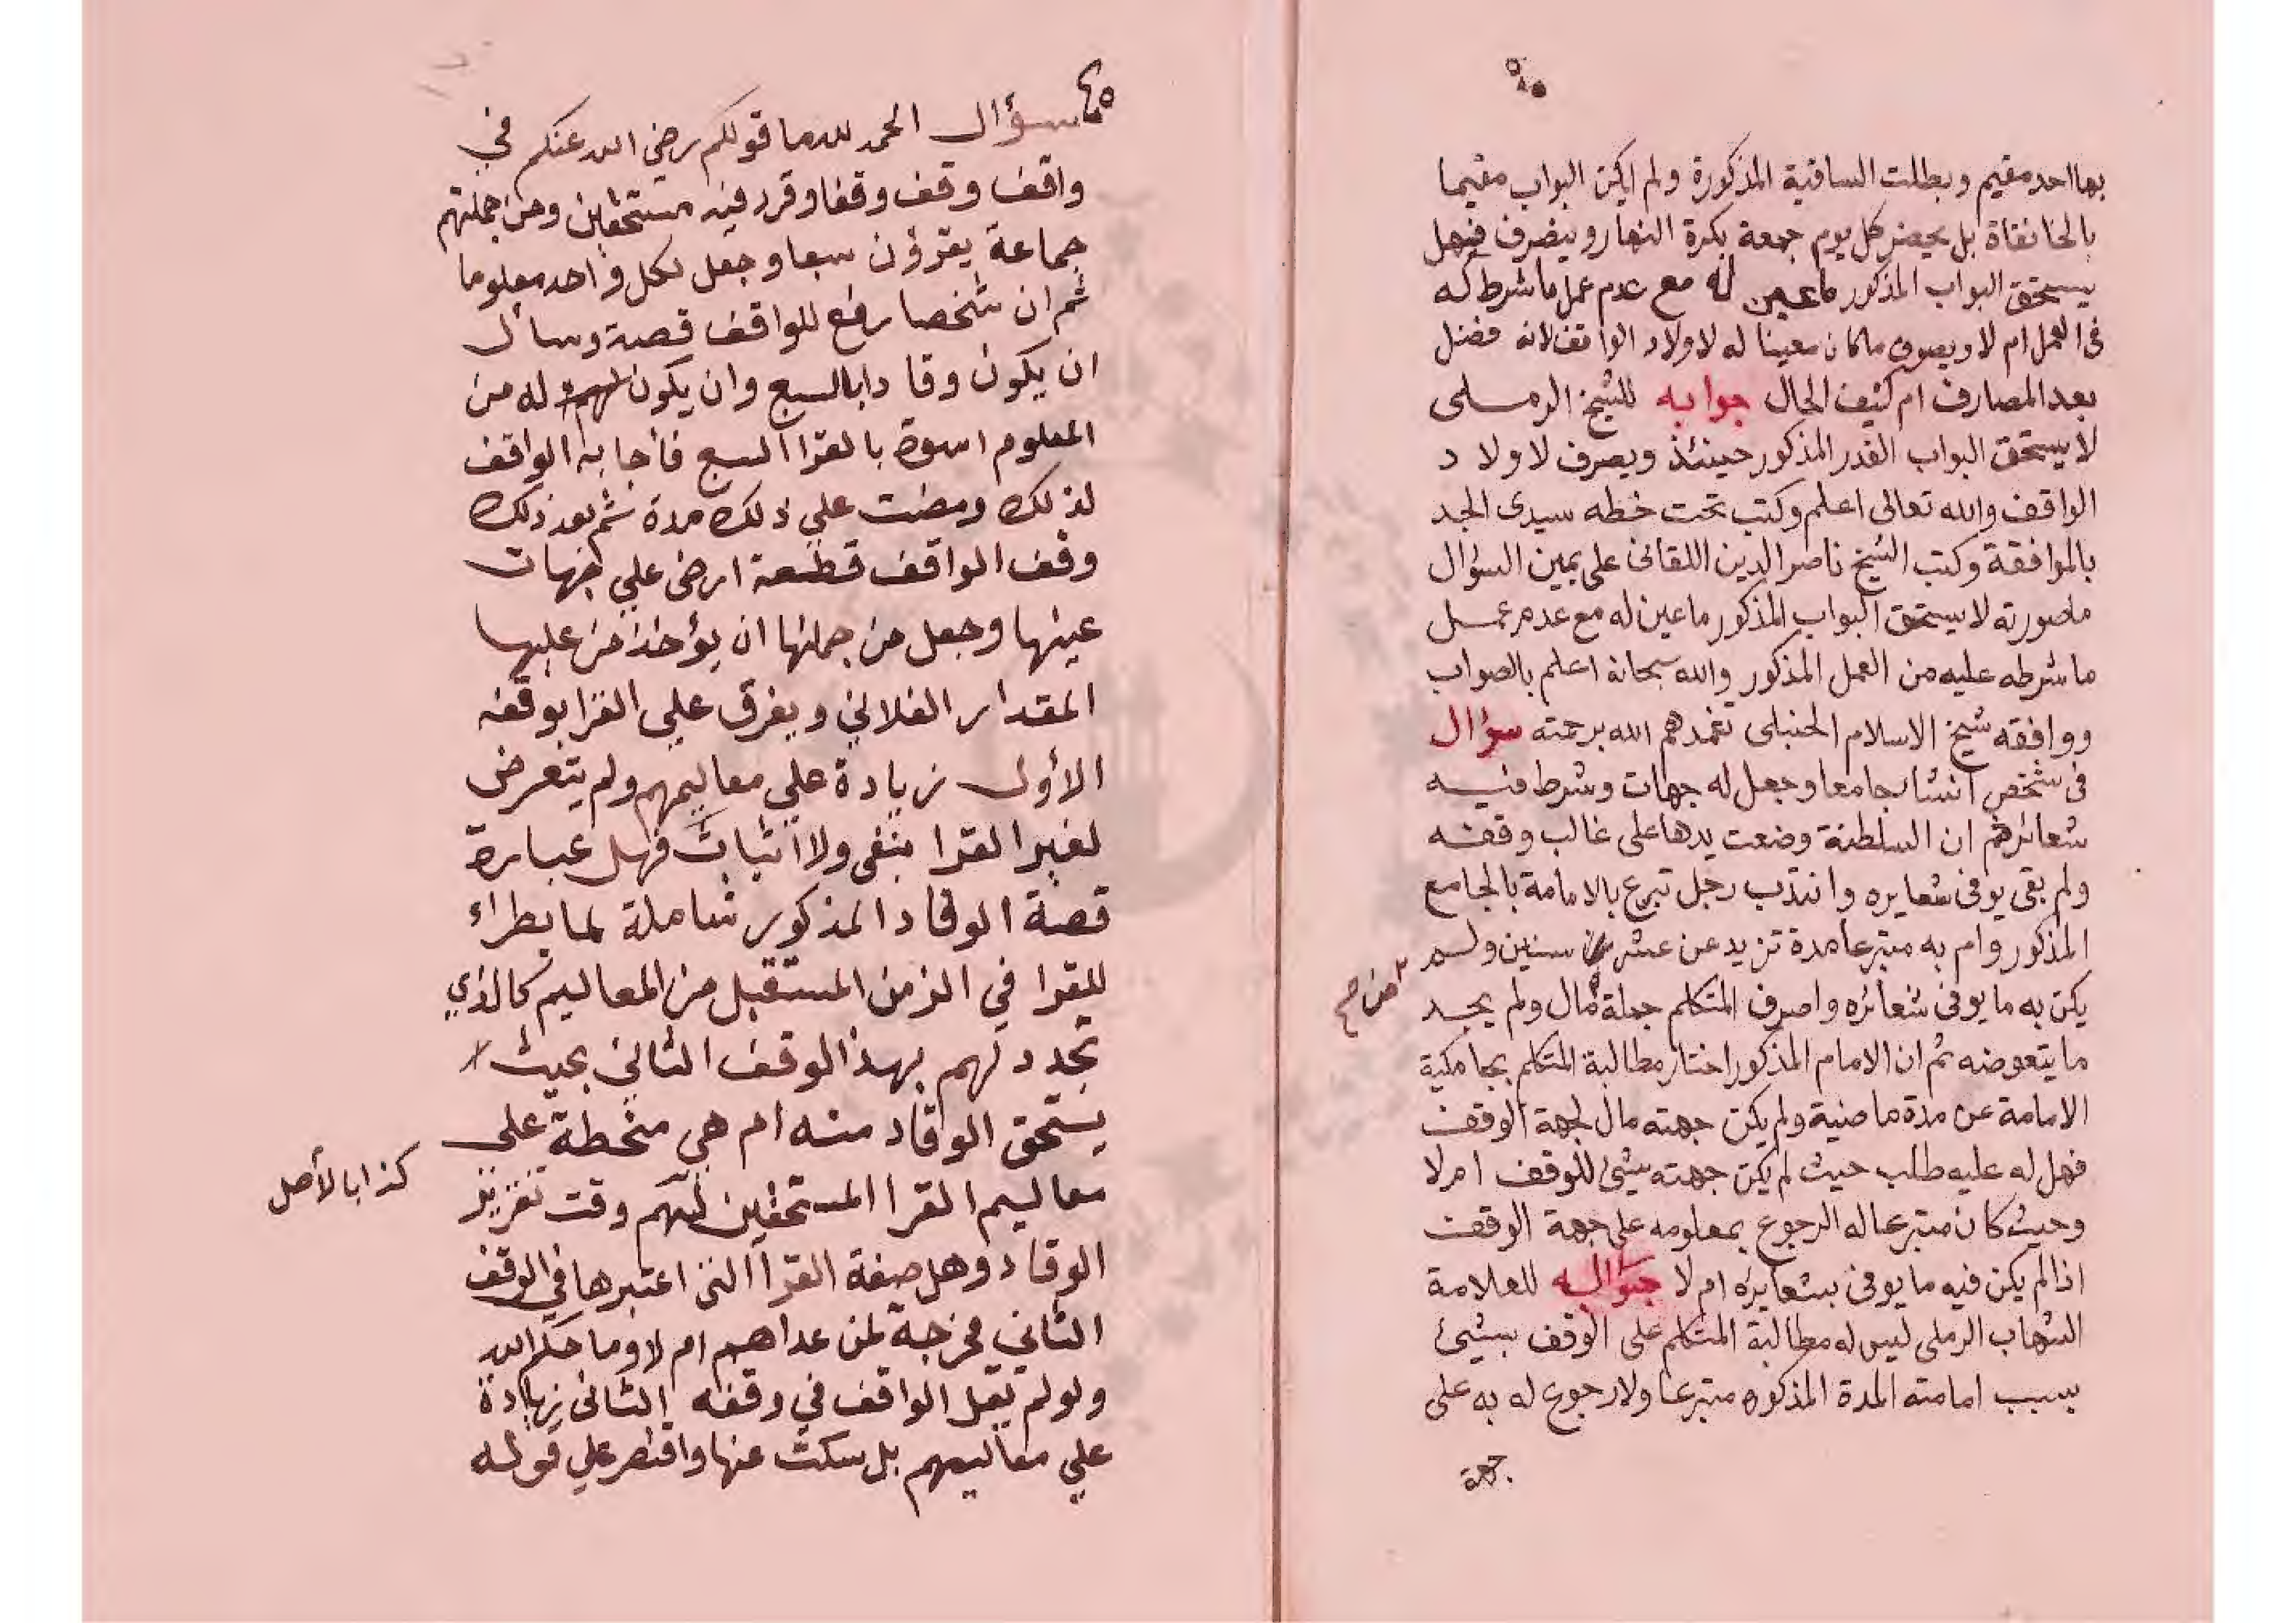 بها احد مقيم وبطلت الساقية المذكورة ولم يكن البواب مقيما
بالخانقاة بل يحضر كل يوم جمعة بكرة النهار وينصرف فهل
يستحق البواب المذكور ما عين له مع عدم عمل ما شرط له
في العمل ام لا ويصرف ما كان معينا له لاولاد الواقف لانه فضل
بعد المصارف ام كيف الحال جوابه للشيخ الرملى
لا يستحق البواب القدر المذكور حينئذ ويصرف لاولاد
الواقف والله تعالى اعلم وكتب تحت خطه سيدى الجد
بالموافقة وكتب الشيخ ناصر الدين اللقانى على يمين السؤال
ما صورته لا يستحق البواب المذكور ما عين له مع عدم عمل
ما شرطه عليه من العمل المذكور والله سبحانه اعلم بالصواب
ووافقه شيخ الاسلام الحنبلى تغمدهم الله برحمته سؤال
فى شخص انشا جامعا وجعل له جهات وشرط فيه
شعائر ثم ان السلطنة وضعت يدها على غالب وقفه
ولم بقى يوفى شعايره وانتدب رجل تبرع بالامامة بالجامع
المذكور وام به متبرعا مدة تزيد عن عشر سنين ولم
يكن به ما يوفى شعائره واصرف المتكلم جملة مال ولم يجد
من صح
ما يتعوضه ثم ان الامام المذكور اختار مطالبة المتكلم بجامكية
الامامة عن مدة ماضية ولم يكن جهته مال لجهة الوقف
فهل له عليه طلب حيث لم يكن جهته شئ للوقف ام لا
وحيث كان متبرعا له الرجوع بمعلومه على جهة الوقف
اذا لم يكن فيه ما يوفى بشعايره ام لا جوابه للعلامة
الشهاب الرملى ليس له مطالبة المتكلم على الوقف بشئ
بسبب امامته المدة المذكوره متبرعا ولا رجوع له به على
جهة
٤٥
سؤال الحمد لله ما قولكم رضي الله عنكم في
واقف وقف وقفا وقرر فيه مستحقين ومن جملتهم
جماعة يقرؤن سبعا وجعل لكل واحد معلوما
ثم ان شخصا رفع للواقف قصة وسأل
ان يكون وقادا بالسبع وان يكون له من
المعلوم اسوة بالقرا السبع فأجابه الواقف
لذلك ومضت علي ذلك مدة ثم بعد ذلك
وقف الواقف قطعة ارض علي جهات
عينها وجعل من جملتها ان يؤخذ من غلتها
المقدار الفلاني ويفرق علي القرا بوقفه
الأول زيادة علي معاليمهم ولم يتعرض
لغير القرا بنفى ولا اثبات فهل عبارة
قصة الوقاد المذكور شاملة لما يطراء
للقرا في الزمن المستقبل من المعاليم كالذي
تجدد لهم بهذا الوقف الثاني بحيث
يستحق الوقاد منه ام هي منحطة على
معاليم القرا المستحقين وقت تقرير
كذا بالأصل
الوقاد وهل صفة القرا التى اعتبرها في الوقف
الثاني مخرجة لمن عداهم ام لا وما حكم الله
ولو لم يقل الواقف في وقفه الثانى زيادة
علي معاليمهم بل سكت عنها واقتصر علي قوله